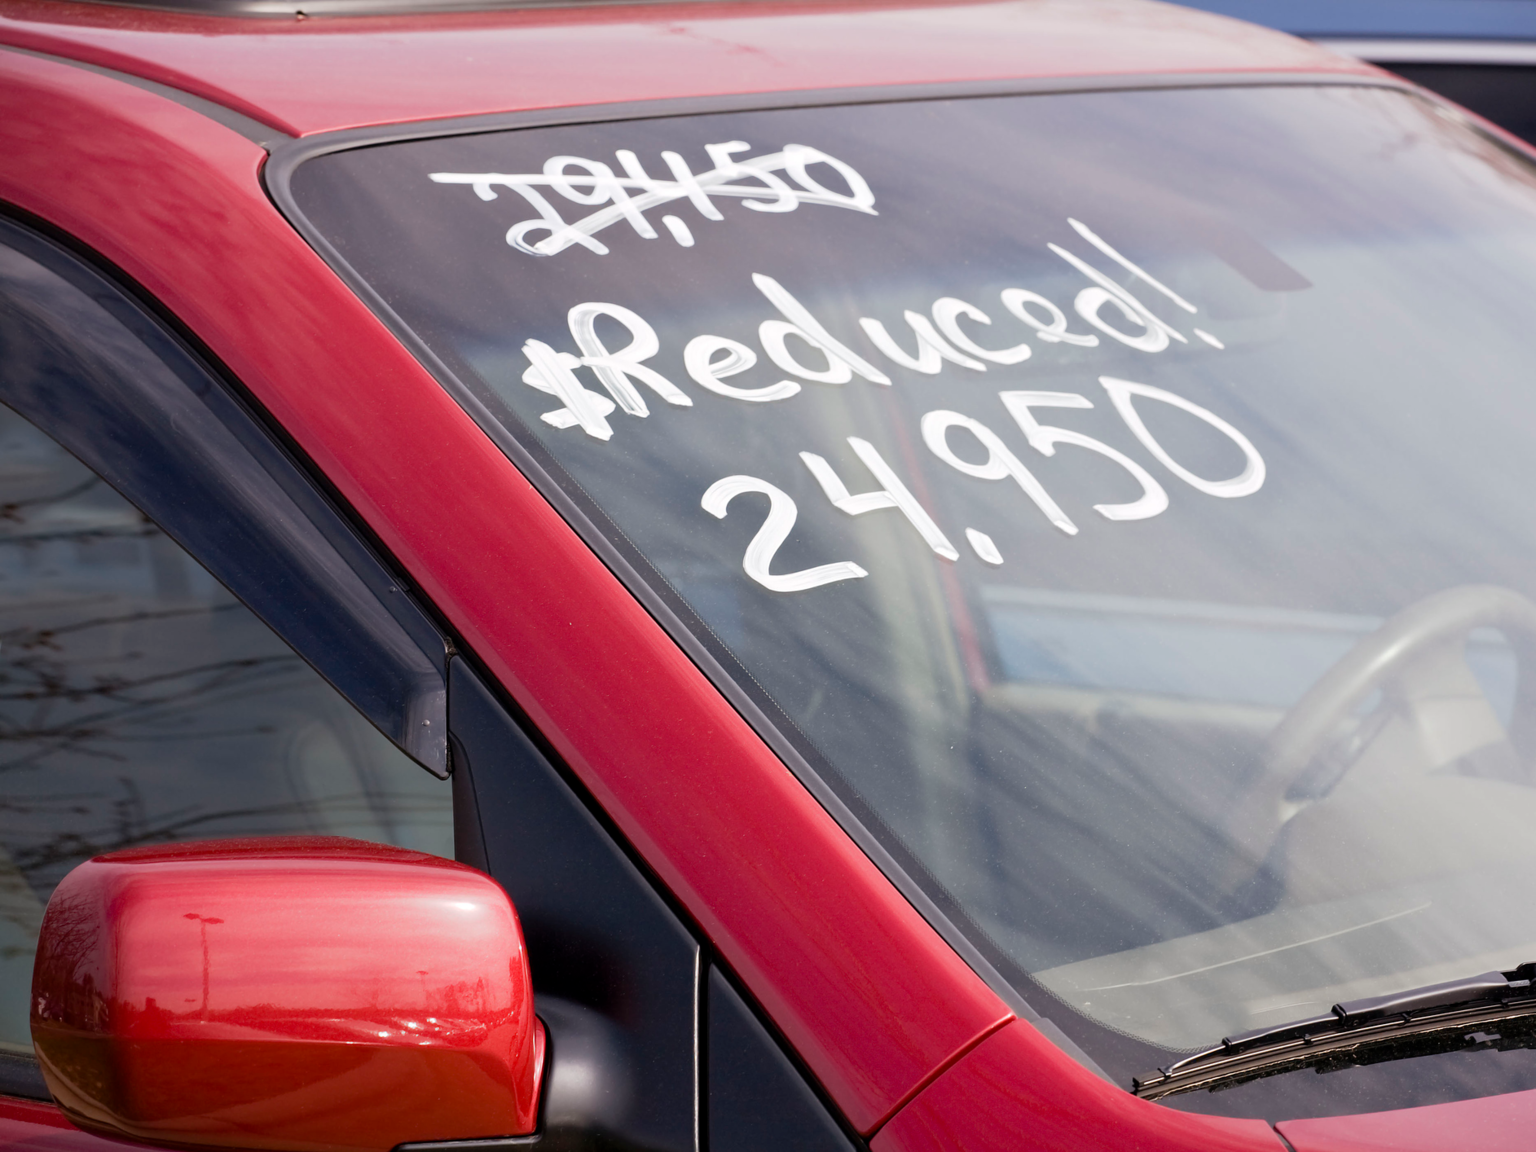 29,450
Reduced!
$24,950